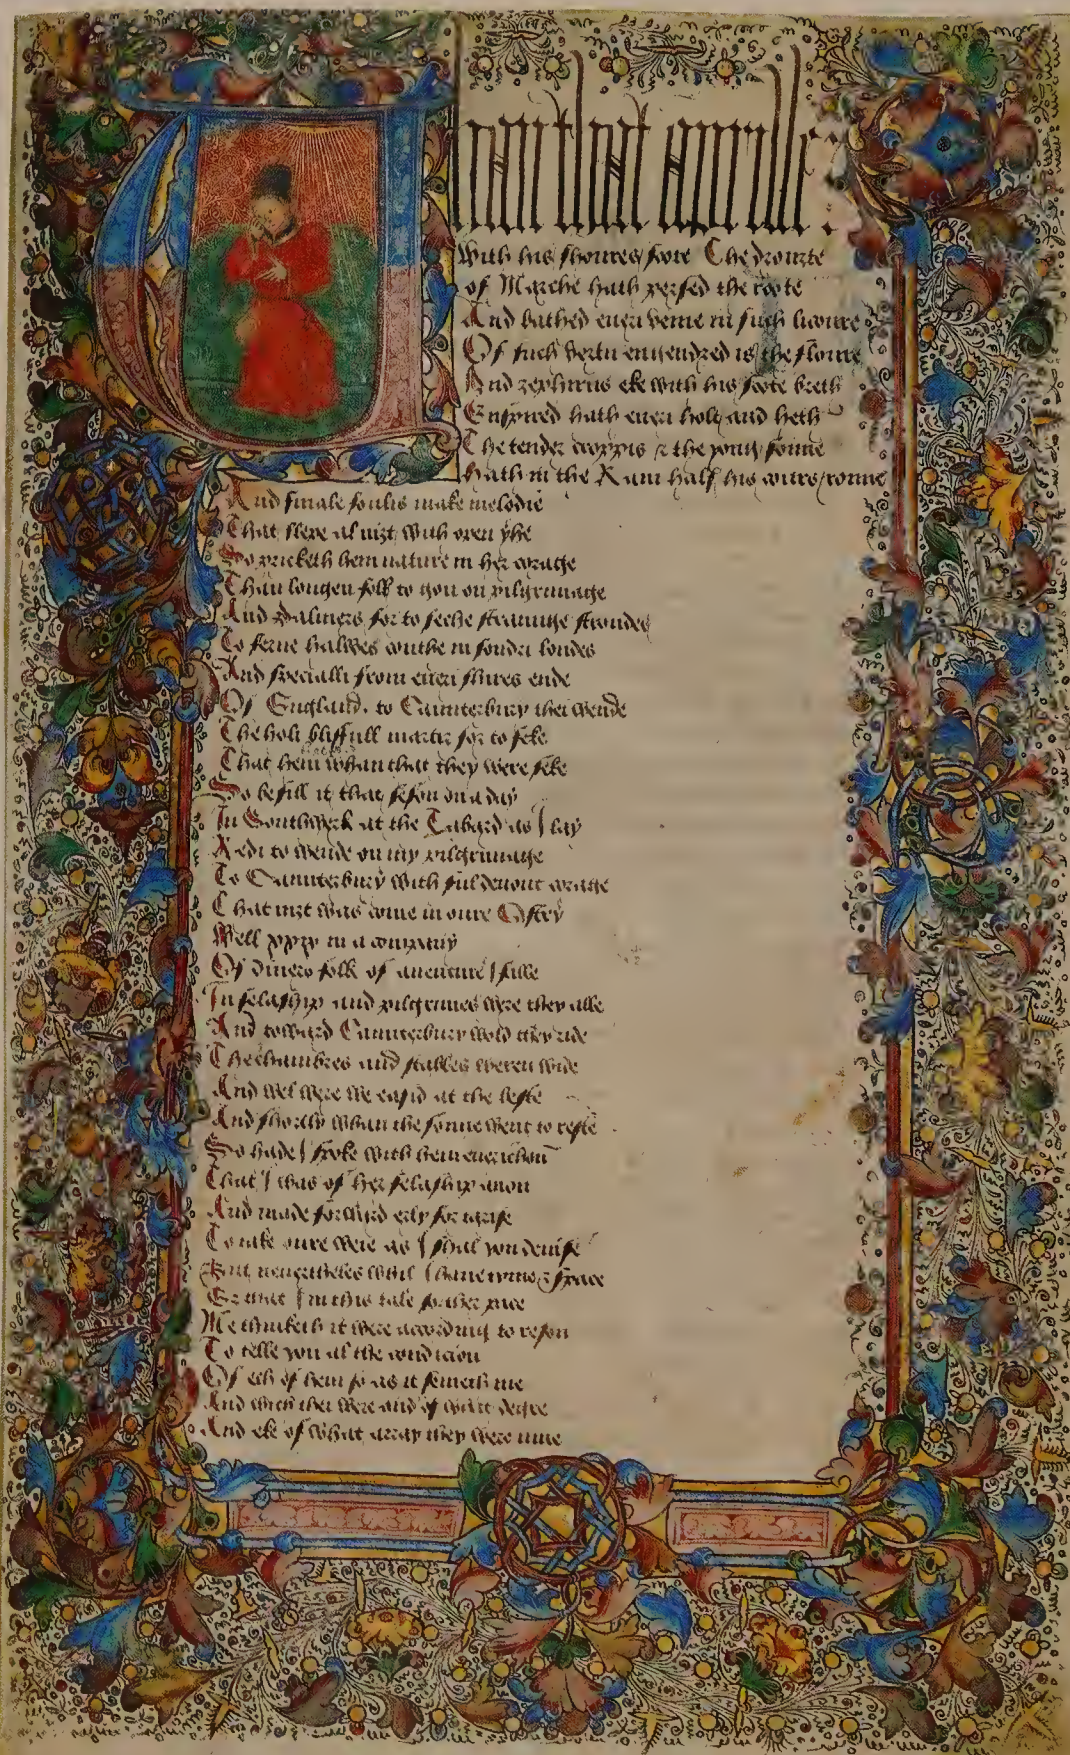 Whan that aprille
With his shoures soote The drouzte
of Marche hath persed the roote
And bathed eueri veine in such licoure
Of such vertu engendred is the floure
And zephirus eke with his soote breth
Enspired hath eueri holt and heth
The tender croppis & the yong sonne
hath in the Ram half his cours ronne
And smale foulis make melodie
That slepe al nizt with open yhe
So pricketh hem nature in her corage
Than longen folk to gon on pilgrimage
And Palmers for to seche straunge strondes
To ferne halwes couthe in sondri londes
And specialli from eueri shires ende
Of England. to Caunterbury thei wende
The holi blissfull martir for to seke
That hem whan that they were seke
So befill it that seson on a day
In Southwerk at the Tabard as I lay
Redi to wende on my pilgrimage
To Caunterbury with ful deuout corage
That nizt was come in oure Ostry
Well xxxx in a company
Of diuers folk of auenture I falle
In felaship and pilgrimes were they alle
And toward Caunterbury wold they ride
The chambres and stables weren wide
And wel were we easid at the beste
And shortly whan the sonne went to reste
So hade I spoke with hem euerichon
That I was of her felaship anon
And made forward erly for to rise
To take oure weie as I shal you deuise
But neuertheles whil I haue tyme & space
Er that I in this tale forther pace
Me thinketh it were according to reson
To telle you al the condicion
Of ech of hem so as it semeth me
And which thei were and of what degre
And eke of what array they were inne